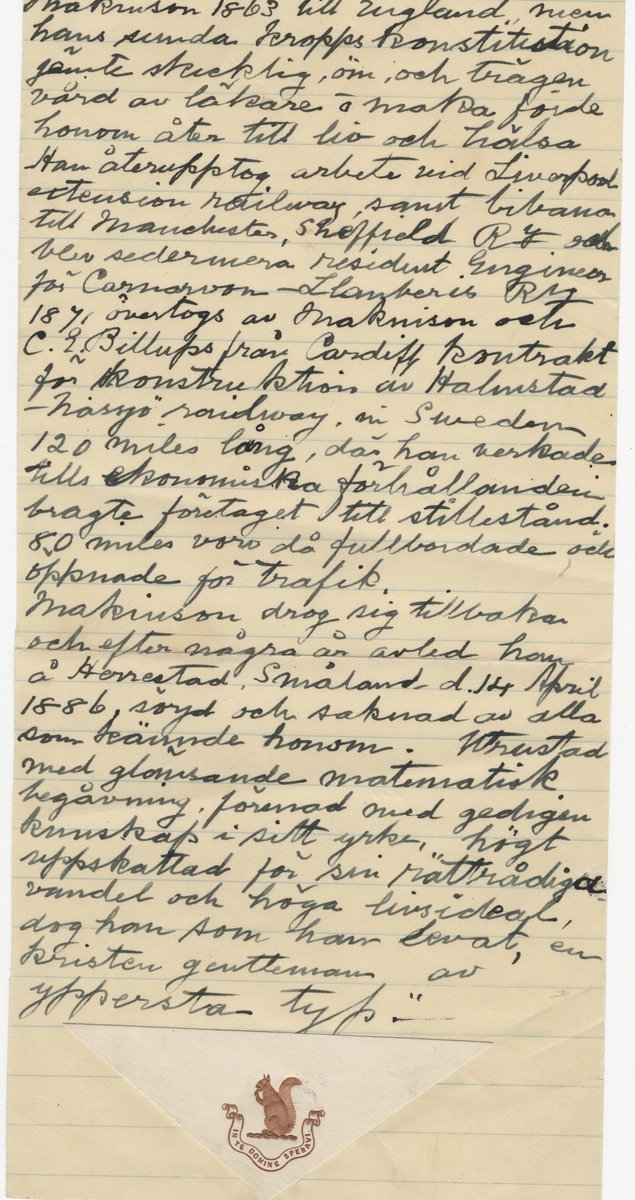 Makinson 1863 till England, men
hans sunda kroppskonstitution
jemte skicklig, öm, och trägen
vård av läkare o maka förde
honom åter till liv och hälsa
Han återupptog arbete vid Liverpool
extension railway, samt bibana
till Manchester, Sheffield Ry och
blev sedermera resident Engineer
för Carnarvon - Llanberis Ry
1871 övertogs av Maknison och
C. E. Billups från Cardiff kontrakt
för konstruktion av Halmstad
- Nässjö railway, in Sweden
120 miles lång, där han verkade
tills ekonomiska förhållanden
bragte företaget till stillestånd.
80 miles voro då fullbordade och
öppnade för trafik.
Makinson drog sig tillbaka
och efter några år avled han
å Herrestad, Småland d. 14 April
1886, sörjd och saknad av alla
som kännde honom. Utrustad
med glänsande matematisk
begåvning, förenad med gedigen
kunskap i sitt yrke, högt
uppskattad för sin rättrådiga
vandel och höga livsideal,
dog han som han levat, en
kristen gentleman av
yppersta typ."
IN TE DOMINE SPERAVI